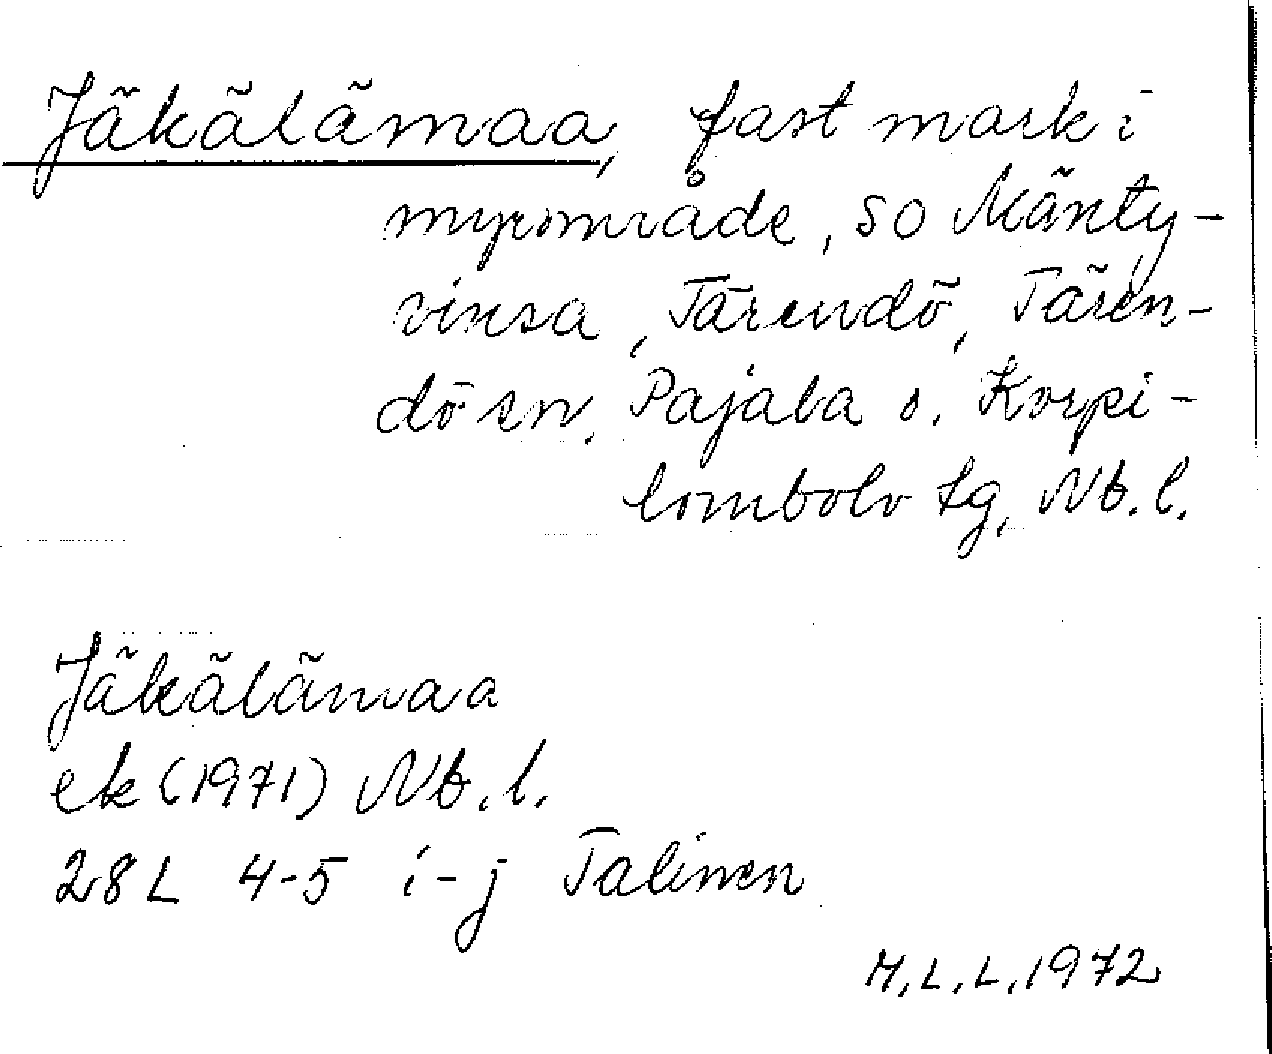 Jäkälämaa, fast mark i
myrområde, SO Mänty-
vinsa, Tärendö, Tären-
dö sn, Pajala o. Korpi-
lombolo tg, Nb. l.
Jäkälämaa
ek (1971) Nb. l.
28 L 4-5 i-j Talinen
M.L.L. 1972